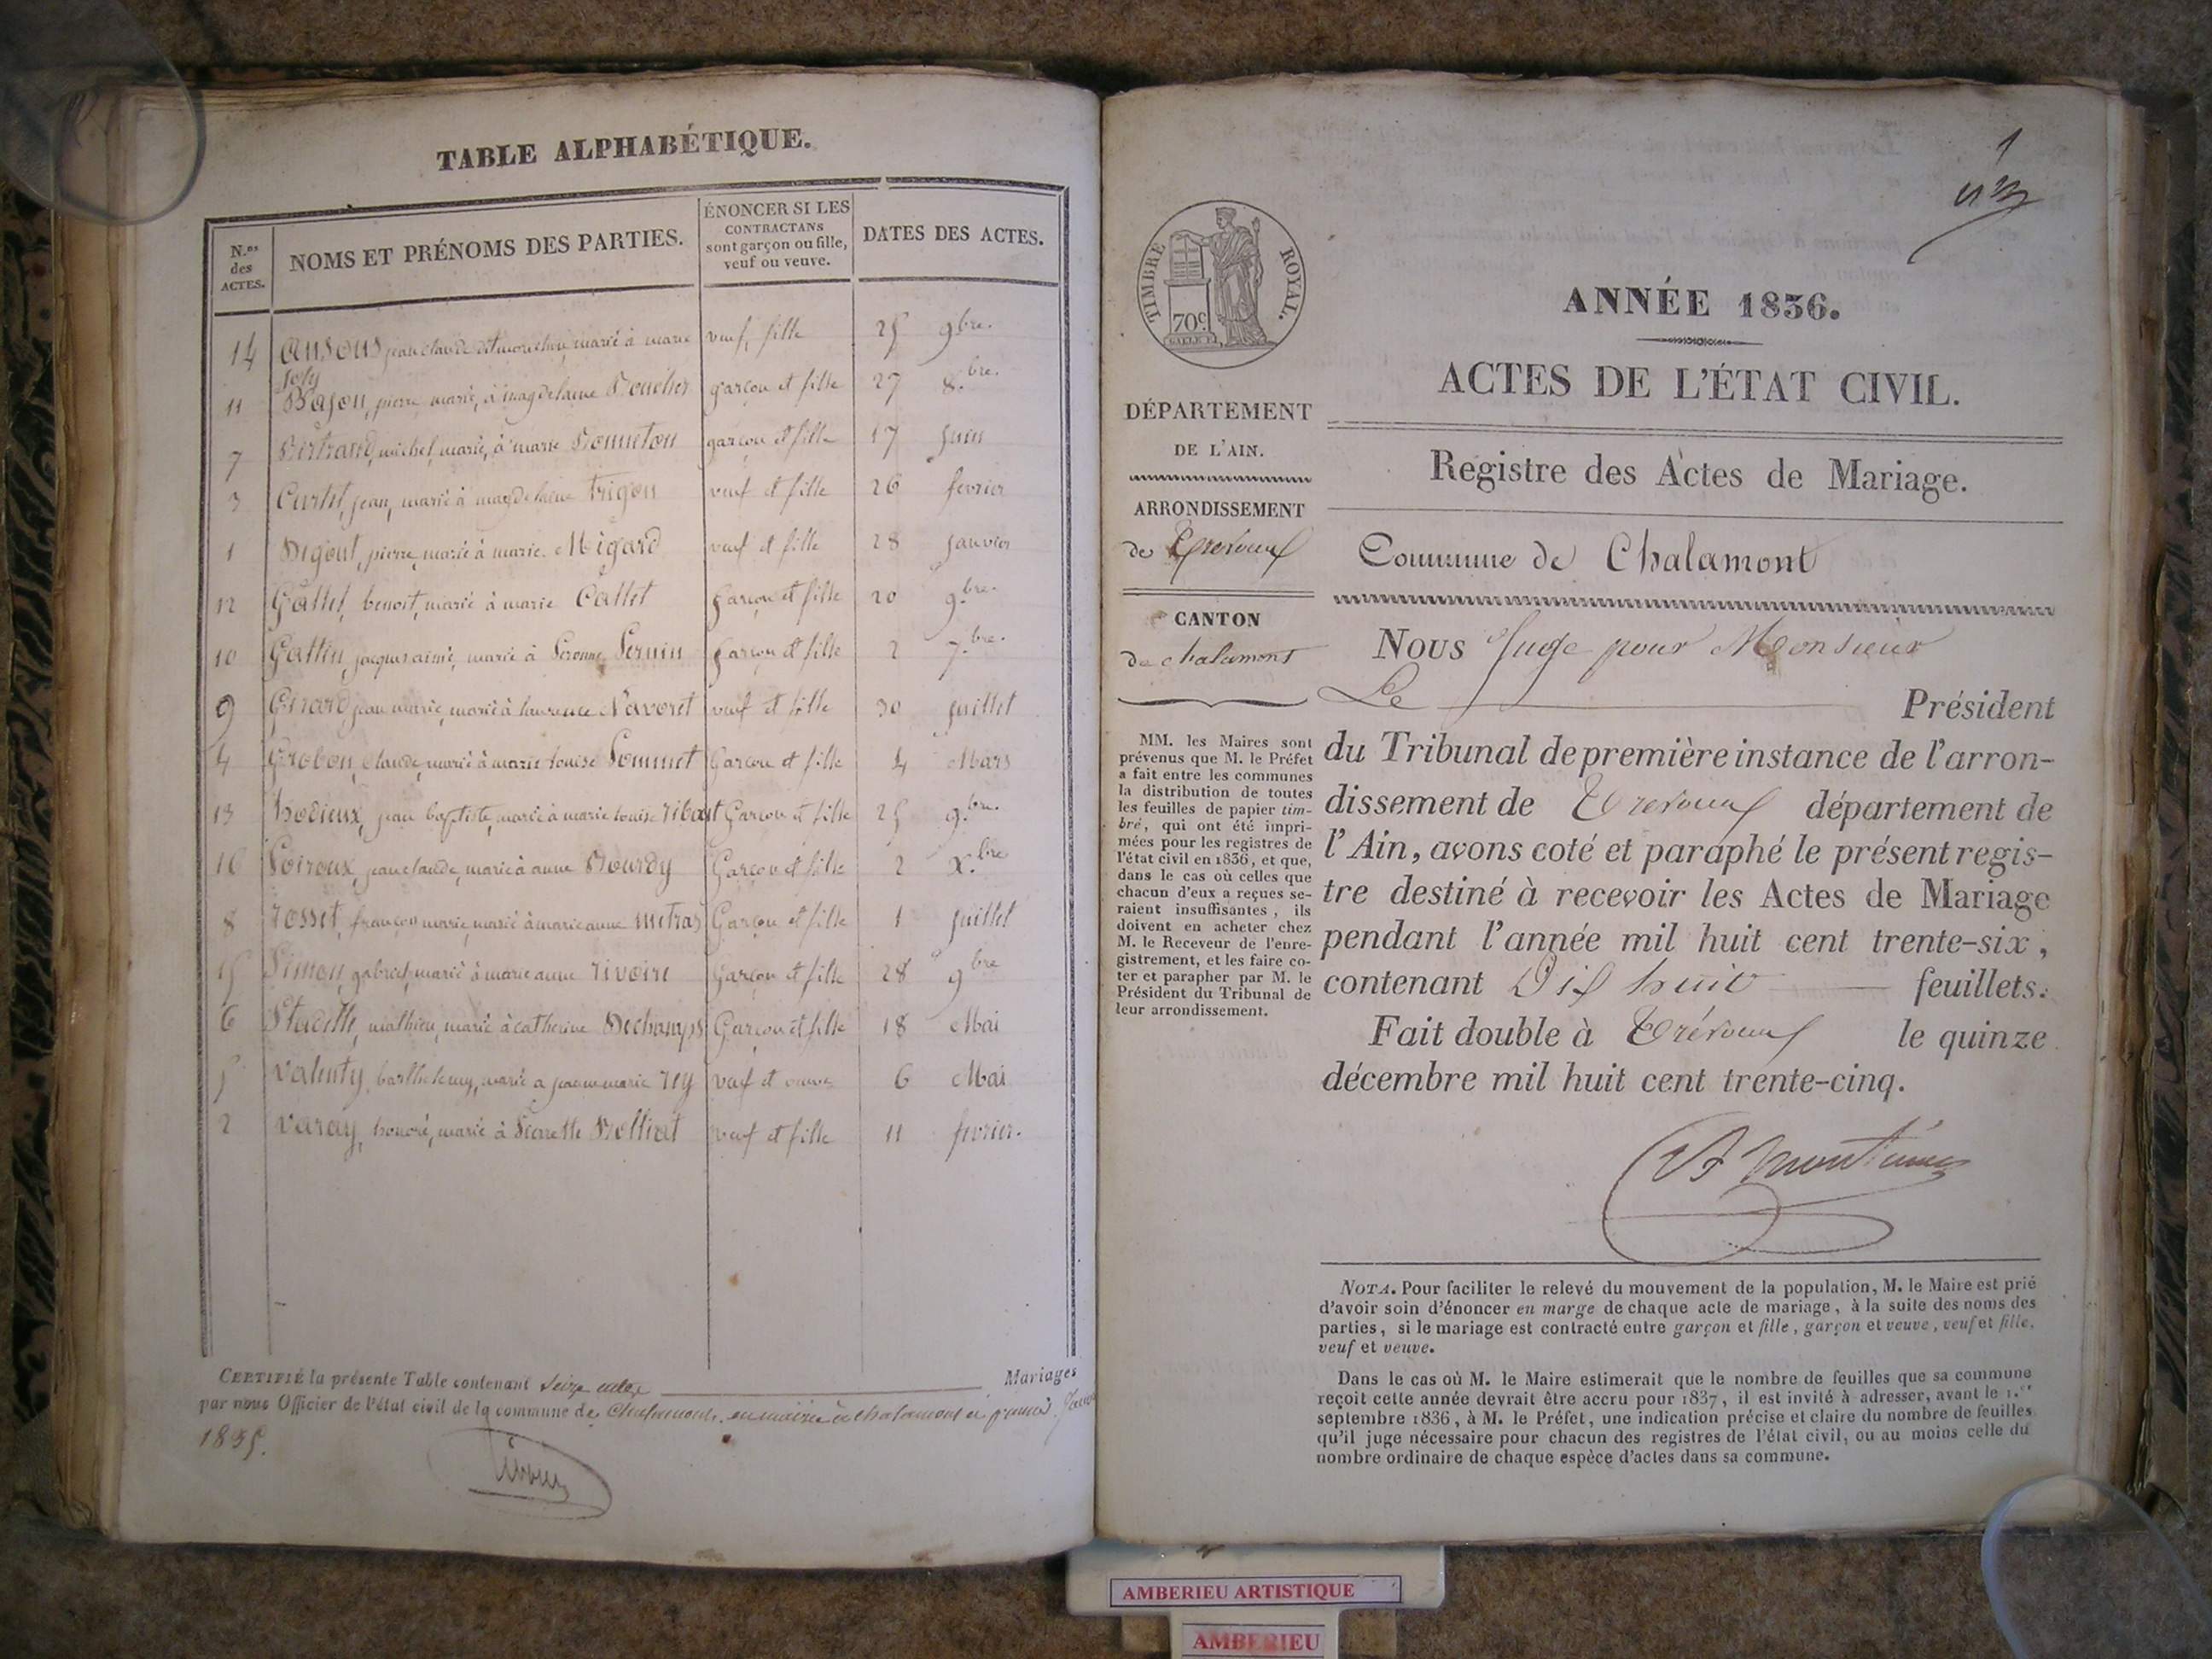 TABLE ALPHABÉTIQUE.
N.os des ACTES.
NOMS ET PRÉNOMS DES PARTIES.
ÉNONCER SI LES CONTRACTANS sont garçon ou fille, veuf ou veuve.
DATES DES ACTES.
14 jean claude marié à marie veuf, fille 25 9bre.
Joly
11 Bajon, pierre marié, à magdelaine Bouchet garçon et fille 27 8.bre.
7 Bertrand, michel, marié, à marie Bonneton garçon et fille 17 juin
3 Curtet, jean, marié à magdelaine Trigon veuf et fille 26 fevrier
1 Digout, pierre, marié à marie Migard veuf et fille 28 janvier
12 Gallet, benoit, marié à marie Callet garçon et fille 20 9.bre.
10 Gattin, jacques aimé, marié à Pernin garçon et fille 2 7.bre.
9 Girard, jean marie, marié à laurence Navoret veuf et fille 30 juillet
4 Grobon, claude, marié à marie louise Pommet Garçon et fille 4 Mars
13 hodieux, jean baptiste, marié à marie louise ribaut Garçon et fille 25 9.bre.
16 Poiroux, jean claude, marié à anne Bourdy Garçon et fille 2 X.bre
8 rosset, françois marie, marié à marie anne mitras Garçon et fille 1 juillet
15 Simon, gabriel, marié à marie anne rivoire Garçon et fille 28 9bre
6 mathieu, marié à catherine Dechamps Garçon et fille 18 Mai
5 Valenty, barthelemy, marié a jeanne marie rey veuf et veuve 6 Mai
2 Varay, honoré, marié à Pierrette Bolliat veuf et fille 11 fevrier.
CERTIFIÉ la présente Table contenant Seize actes Mariages
par nous Officier de l'état civil de la commune de Chalamont, en mairie à chalamont
1835.
1
ANNÉE 1836.
ACTES DE L'ÉTAT CIVIL.
Registre des Actes de Mariage.
Commune de Chalamont
TIMBRE ROYAL.
70c
DÉPARTEMENT
DE L'AIN.
ARRONDISSEMENT
de Trévoux
CANTON
de chalamont
MM. les Maires sont
prévenus que M. le Préfet
a fait entre les communes
la distribution de toutes
les feuilles de papier tim-
bré, qui ont été impri-
mées pour les registres de
l'état civil en 1836, et que,
dans le cas où celles que
chacun d'eux a reçues se-
raient insuffisantes, ils
doivent en acheter chez
M. le Receveur de l'enre-
gistrement, et les faire co-
ter et parapher par M. le
Président du Tribunal de
leur arrondissement.
Nous Juge pour Monsieur
Le Président
du Tribunal de première instance de l'arron-
dissement de Trevoux département de
l'Ain, avons coté et paraphé le présent regis-
tre destiné à recevoir les Actes de Mariage
pendant l'année mil huit cent trente-six,
contenant Dix huit feuillets.
Fait double à Trévoux le quinze
décembre mil huit cent trente-cinq.
NOTA. Pour faciliter le relevé du mouvement de la population, M. le Maire est prié
d'avoir soin d'énoncer en marge de chaque acte de mariage, à la suite des noms des
parties, si le mariage est contracté entre garçon et fille, garçon et veuve, veuf et fille,
veuf et veuve.
Dans le cas où M. le Maire estimerait que le nombre de feuilles que sa commune
reçoit cette année devrait être accru pour 1837, il est invité à adresser, avant le 1.er
septembre 1836, à M. le Préfet, une indication précise et claire du nombre de feuilles
qu'il juge nécessaire pour chacun des registres de l'état civil, ou au moins celle du
nombre ordinaire de chaque espèce d'actes dans sa commune.
AMBERIEU ARTISTIQUE
AMBERIEU